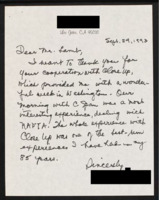 Sept. 29, 1993
Dear Mr. Lamb,
I want to thank you for
your cooperation with Close Up,
which provided me with a wonder-
ful week in Washington. Our
morning with C-Span was a most
interesting experience, dealing with
NAFTA. The whole experience with
Close Up was one of the best
experiences I have had in my
85 years.
Sincerely,